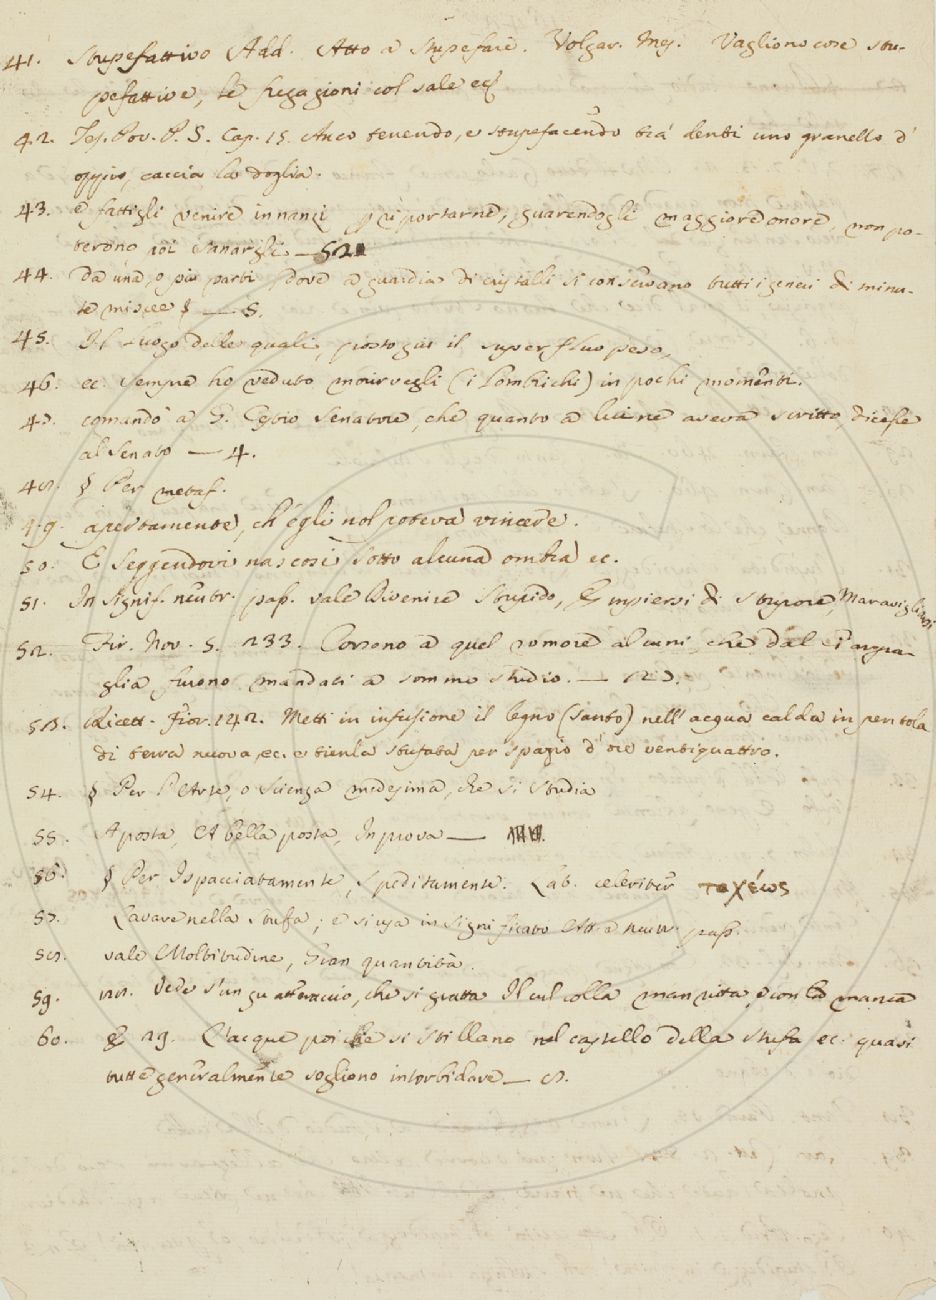 41. Stupefattivo Add. Atto a stupefare. Volgar. Mes. Vagliono cose stu-
pefattive, le fregagioni col sale ec
42. Tes. Pov. P. S. Cap. 15. Anco tenendo, e stupefacendo tra' denti uno granello d'
oppio, caccia la doglia.
43. e fattigli venire innanzi per portarne, guarendogli maggiore onore, non po-
terono poi sanargli — 52
44. da una, o più parti dove a guardia di cristalli si conservano tutti i generi di minu-
te miscee § — 5.
45. Il luogo delle quali, posto giù il superfluo peso,
46. ec. sempre ho veduto morirvegli (i Lombrichi) in pochi momenti.
47. comandò a S. Egbio Senatore, che quanto a lui ne aveva scritto, dicesse
al Senato — 4.
48. § Per metaf.
49. apertamente, ch'egli nol poteva vincere.
50. E seggendovi nascosi sotto alcuna ombra ec.
51. In signif. neutr. pass. vale Divenire Stupido, Empiersi di stupore, Maravigliarsi
52. Fir. Nov. 5. 233. Corsono a quel romore alcuni, che dal
glia furono mandati a sommo studio. — 127.
53. Ricett. Fior. 142. Metti in infusione il legno (santo) nell'acqua calda in pentola
di terra nuova, ec. e tienla stufata per spazio d'ore ventiquattro.
54. § Per l'Arte, o Scienza medesima, che si studia
55. Aposta, A bella posta, In prova —
56. § Per Ispacciatamente, Speditamente. Lat. celeriter ταχέως
57. Lavare nella stufa; e si usa in significato Att. e neutr. pass.
58. vale Moltitudine, Gran quantità.
59. 188. Vede s'un guatteraccio, che si gratta Il cul colla man ritta, e con la manca
60. § 29. L'acque poi che si stillano nel castello della stufa ec. quasi
tutte generalmente sogliono intorbidare — 8.